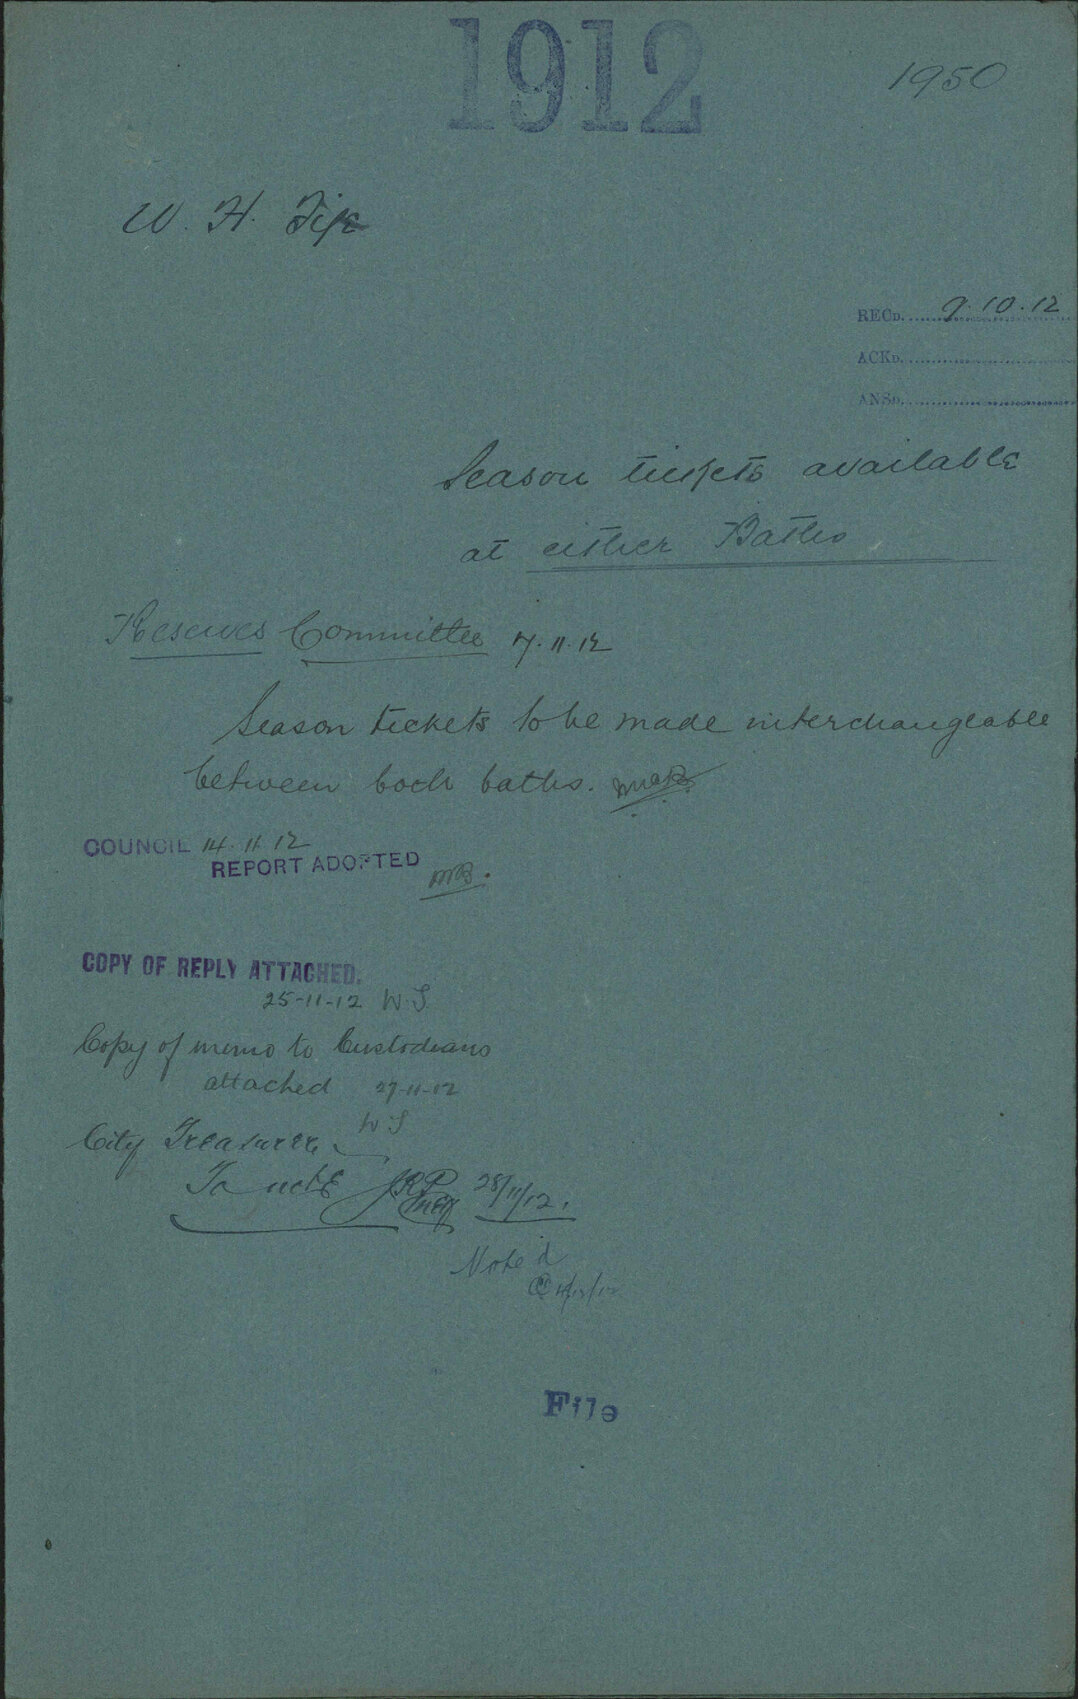 1912
1950
W. H.
RECD. 9.10.12
ACKD.
ANSD.
Season tickets available
at either Baths
Reserves Committee 7.11.12
Season tickets to be made interchangeable
between both baths.
COUNCIL 14.11.12
REPORT ADOPTED
COPY OF REPLY ATTACHED.
25-11-12 W.S.
Copy of memo to Custodians
attached 27-11-12
W S
City Treasurer
To note 28/11/12.
Noted
File